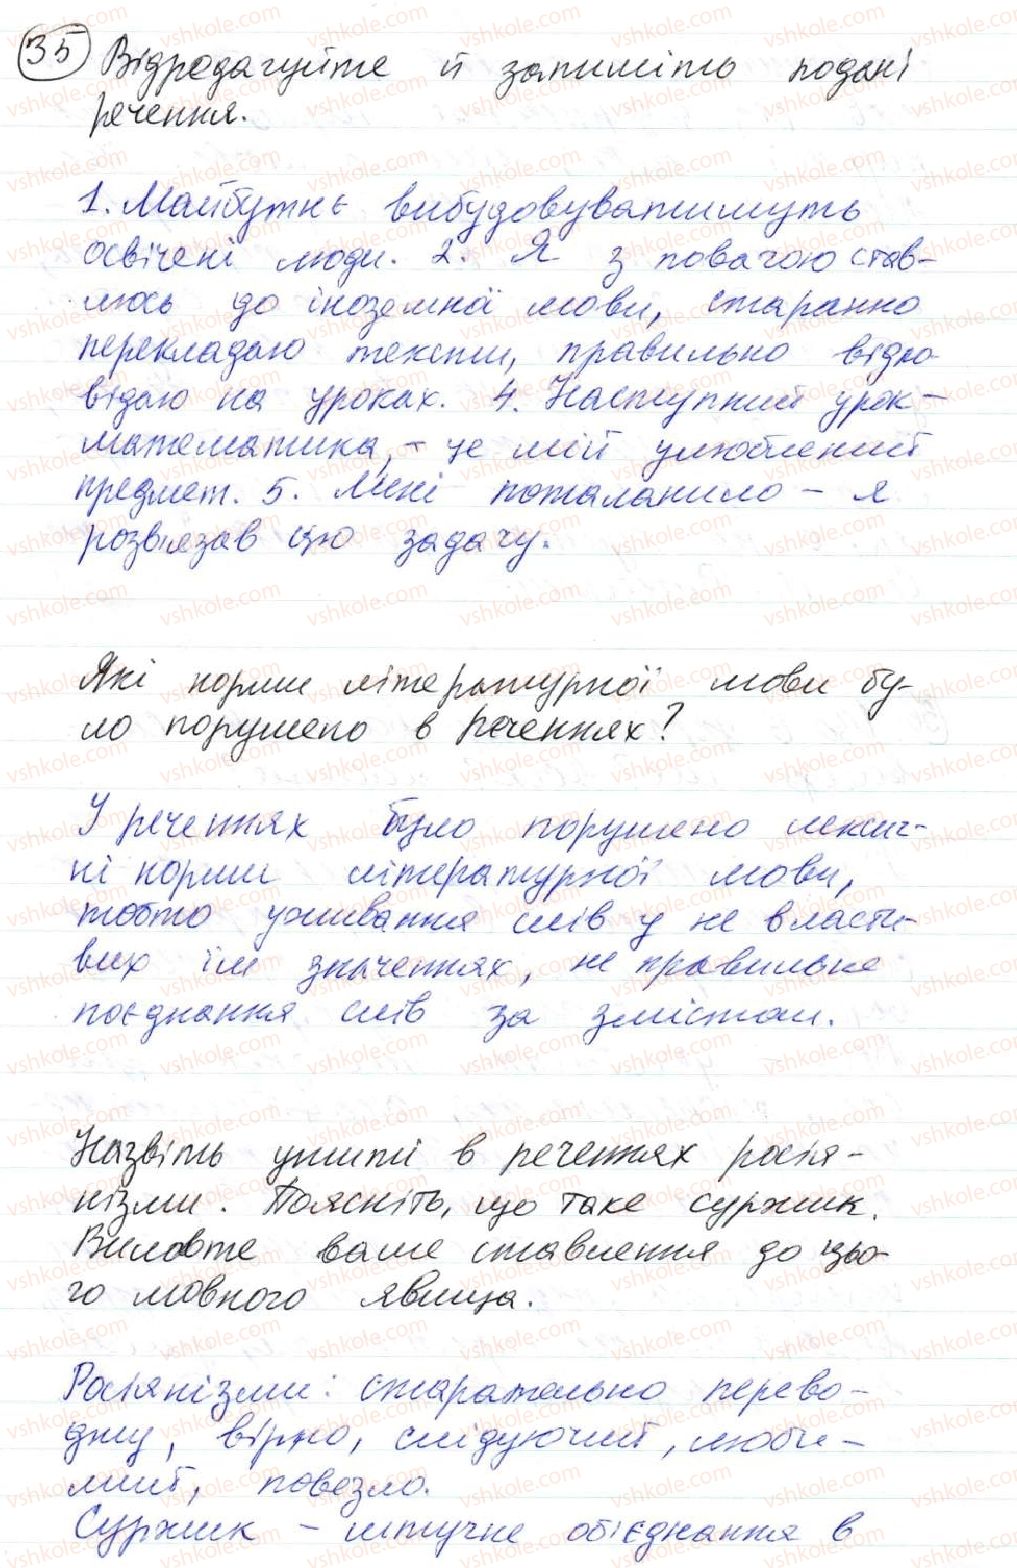 35 Відредагуйте й запишіть подані
речення.
1. Майбутнє вибудовуватимуть
освічені люди. 2. Я з повагою став-
люсь до іноземної мови, старанно
перекладаю тексти, правильно відпо
відаю на уроках. 4. Наступний урок -
математика, - це мій улюблений
предмет. 5. Мені поталанило - я
розвязав цю задачу.
Які норми літературної мови бу-
ло порушено в реченнях?
У реченнях було порушено лексич-
ні норми літературної мови,
тобто уживання слів у не власти-
вих їм значеннях, не правильне
поєднання слів за змістом.
Назвіть ужиті в реченнях росія-
нізми. Поясніть, що таке суржик.
Висловте ваше ставлення до цьо-
го мовного явища.
Росіянізми: старательно перево-
джу, вірно, слідуючий, люби-
мий, повезло.
Суржик - штучне об'єднання в
vshkole.com